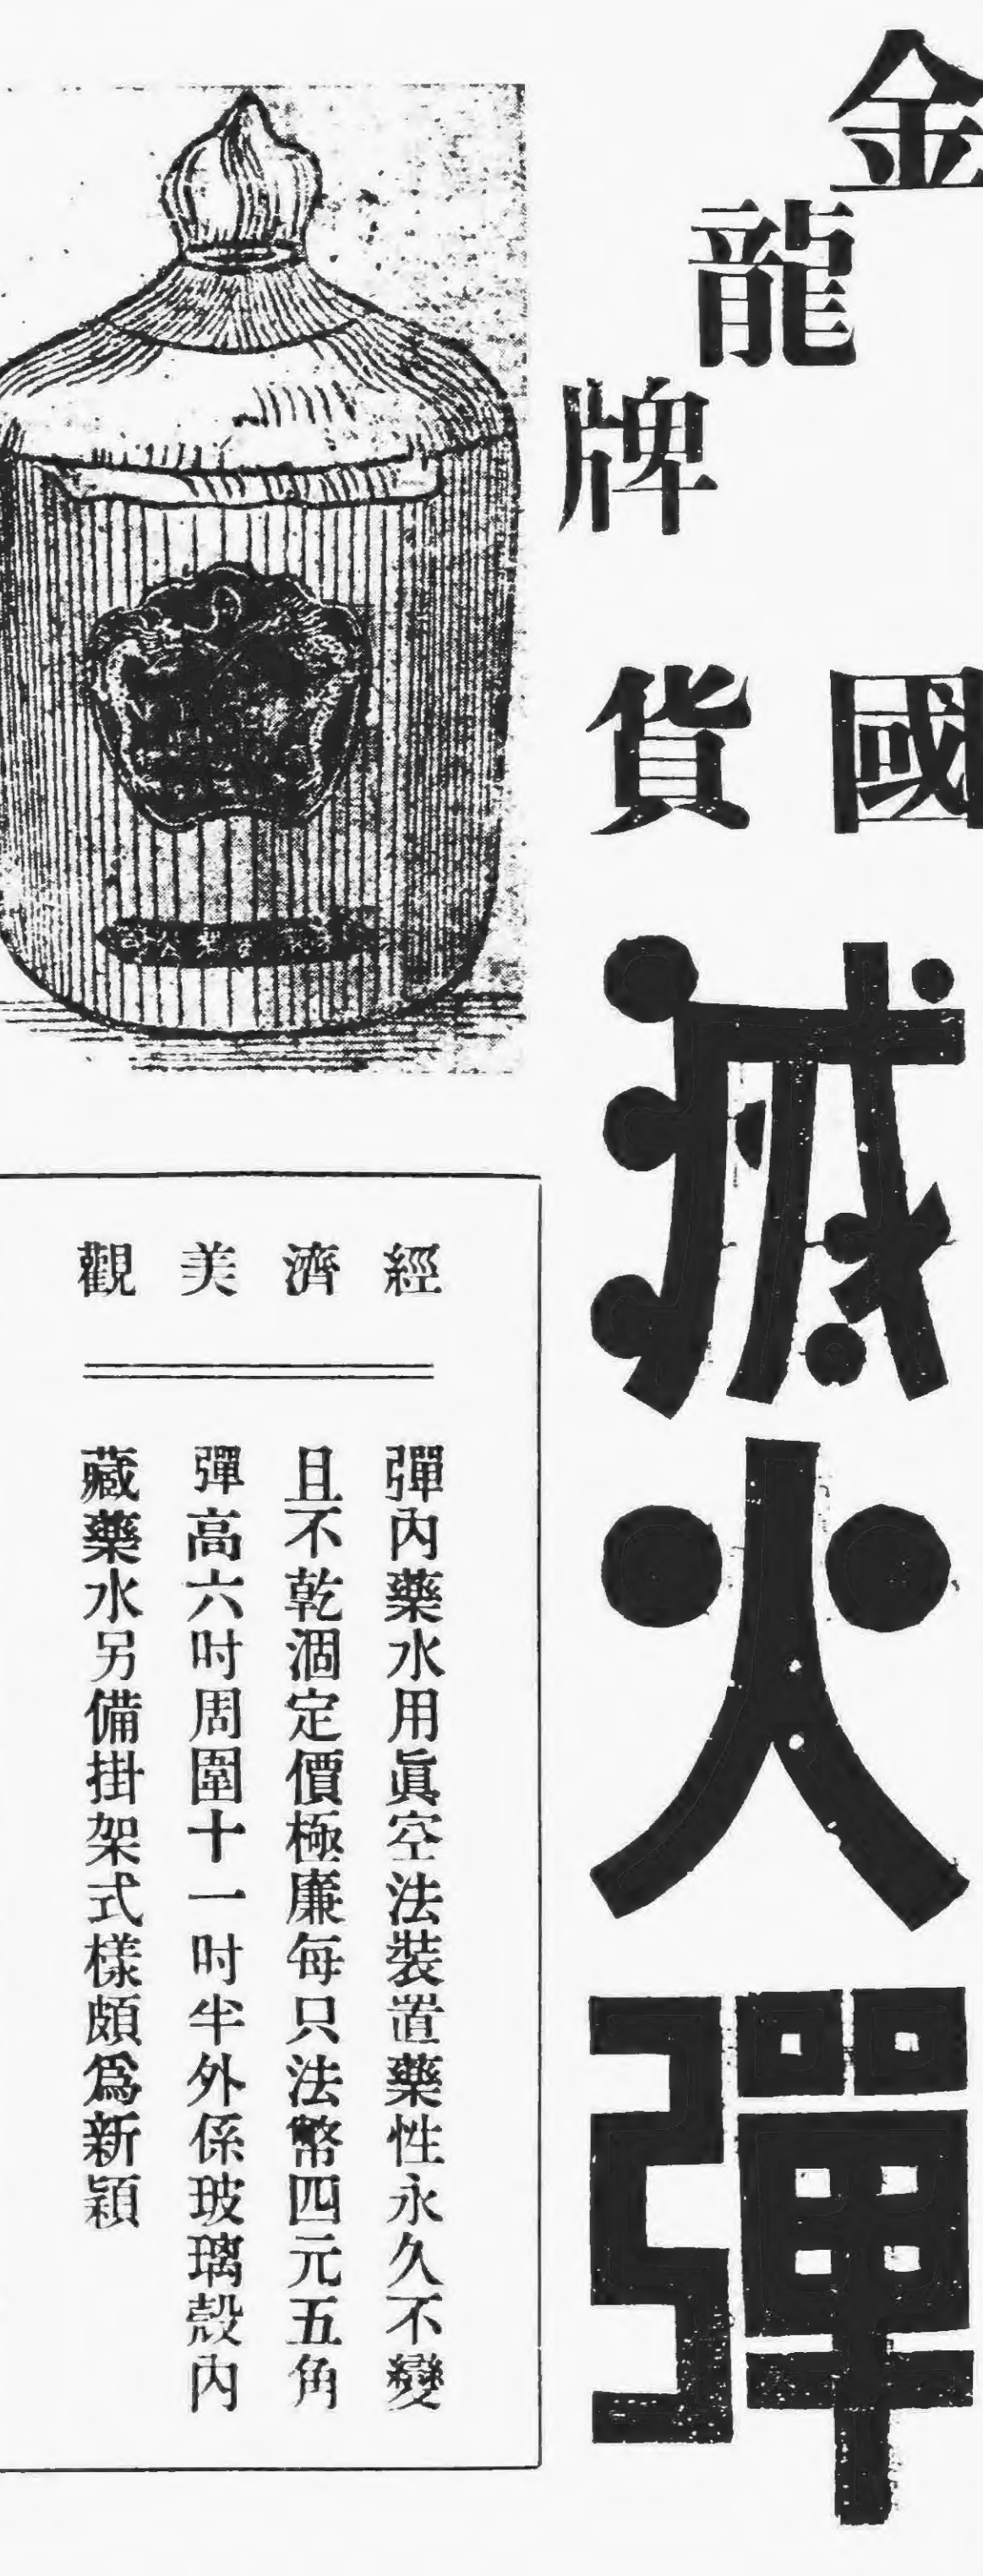 金龍牌
國貨
滅火彈
經濟美觀
彈內藥水用眞空法裝置藥性永久不變
且不乾涸定價極廉每只法幣四元五角
彈高六吋周圍十一吋半外係玻璃殼內
藏藥水另備掛架式樣頗爲新穎